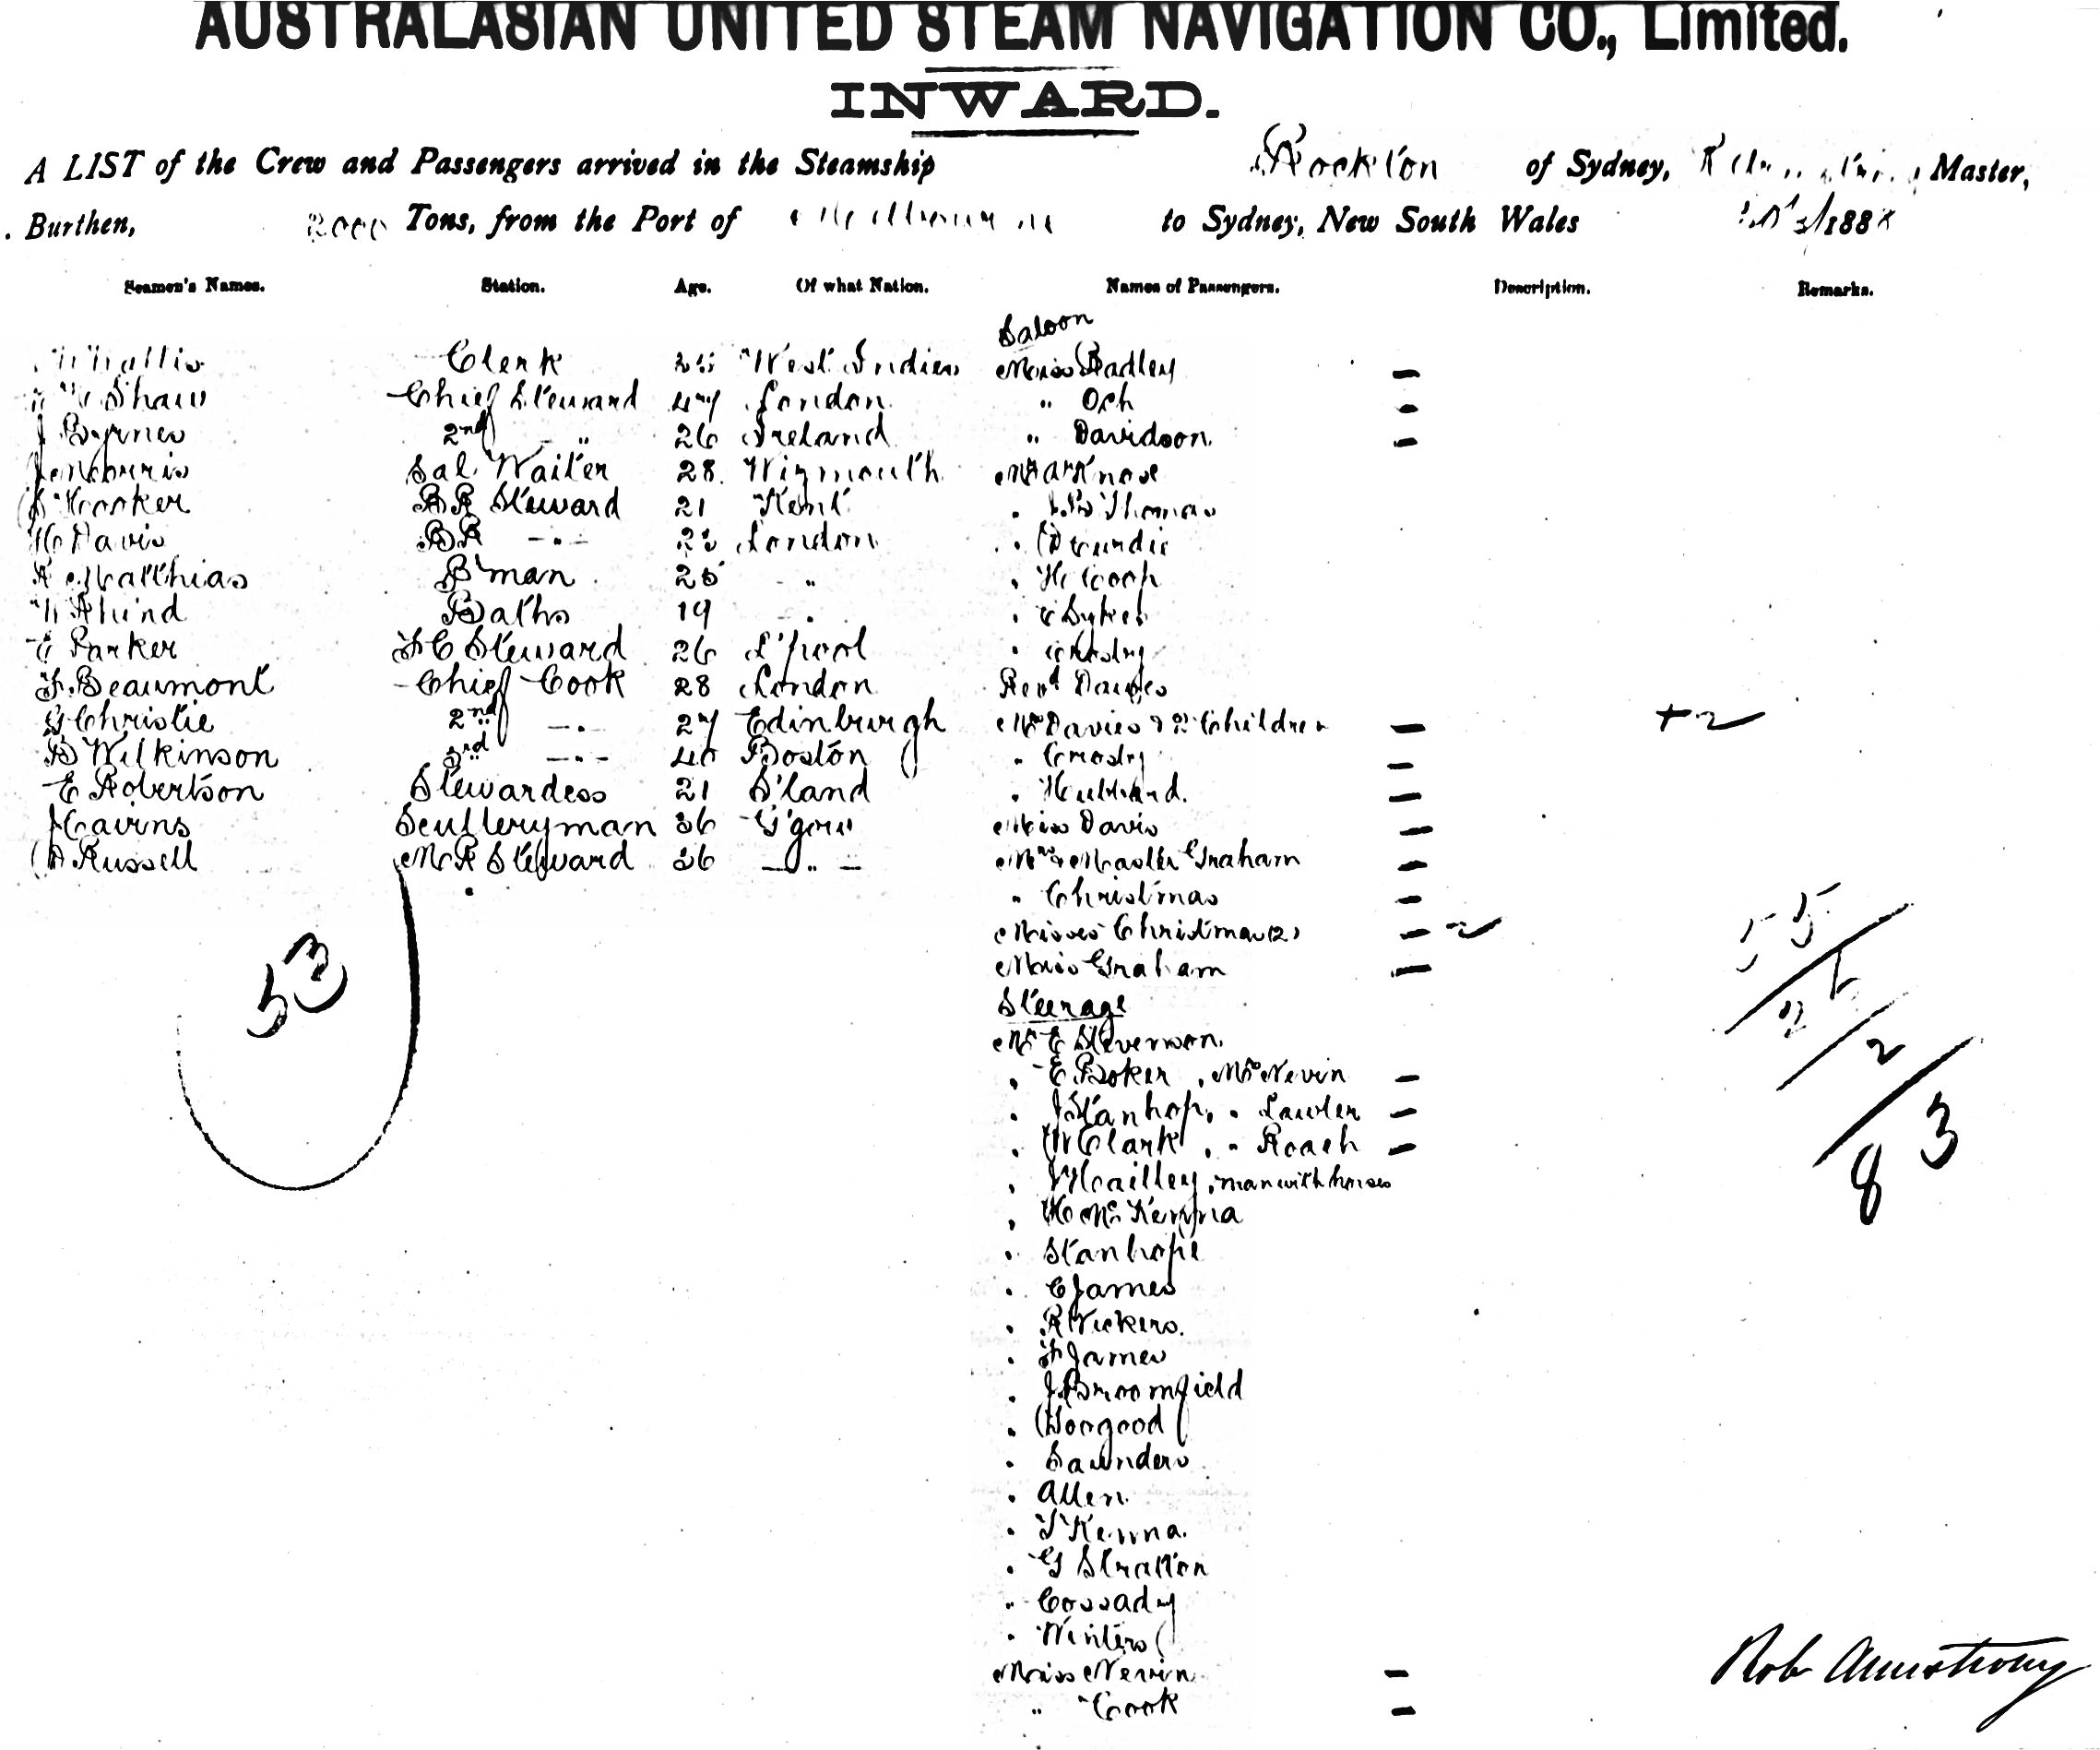 AUSTRALASIAN UNITED STEAM NAVIGATION CO., Limited.
INWARD.
A LIST of the Crew and Passengers arrived in the Steamship Rockton of Sydney, Master,
Burthen, 2000 Tons, from the Port of Melbourne to Sydney, New South Wales /188
Seamen's Names. Station. Age. Of what Nation. Names of Passengers. Description. Remarks.
Saloon
Clerk West Indies Miss Badley —
Shaw Chief Steward 47 London " Och —
J Byrnes 2nd - " 26 Ireland " Davidson. —
J Morris Sal. Waiter 28. Mr A Knox
Hooker BR Steward 21 Kent . Thomas
H Davis BR - " - London . Cundie
A Matthias B'man 25 " . H Coop
W Hind Baths 19 . . C Sykes
E Parker FC Steward 26 L'pool .
F. Beaumont Chief Cook 28 London Revd Davies
G Christie 2nd - " - 27 Edinburgh Mrs Davies & 2 Children — + 2
B Wilkinson 3rd - " - 40 Boston " Crosby —
E Robertson Stewardess 21 S'land . Hubbard. —
J Cairns Scullery man 36 G'gow Miss Davis —
A Russell MR Steward 36 — " — Mrs & Master Graham —
" Christmas —
Misses Christmas (2) — 2
Miss Graham —
53
55
2
2
83
Steerage
Mr E Steverson.
. E Boker . Mrs Nevin —
. J Stanhop. . " Lawler —
. W Clark . " Roach —
. . man with horses
. H McKenna
. Stanhope
. C James
. R Vickers.
. F James
. J Broomfield
. Hosgood
. Saunders
. Allen
. T Kenna.
. G Stratton
" Cossady
. Winters
Miss Nevin —
" Cook —
Rob Armstrong